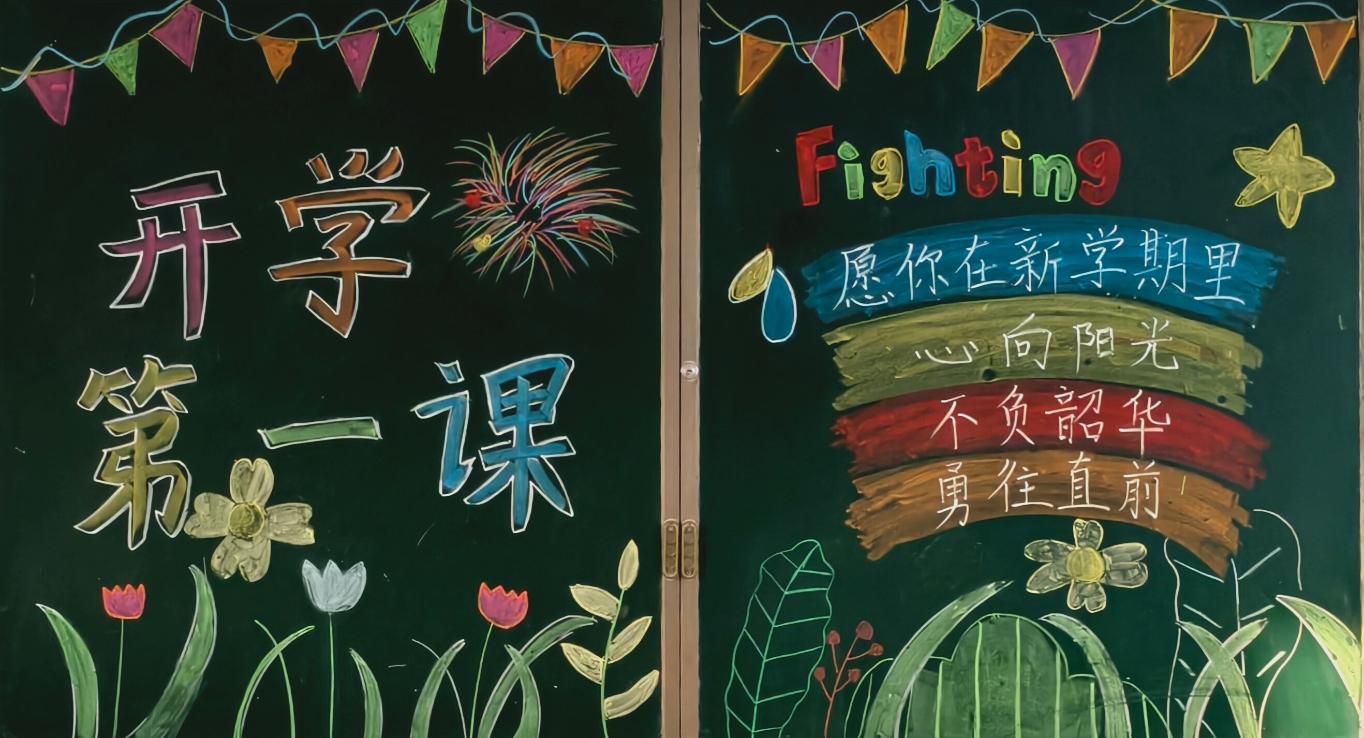 开学
第一课
Fighting
愿你在新学期里
心向阳光
不负韶华
勇往直前